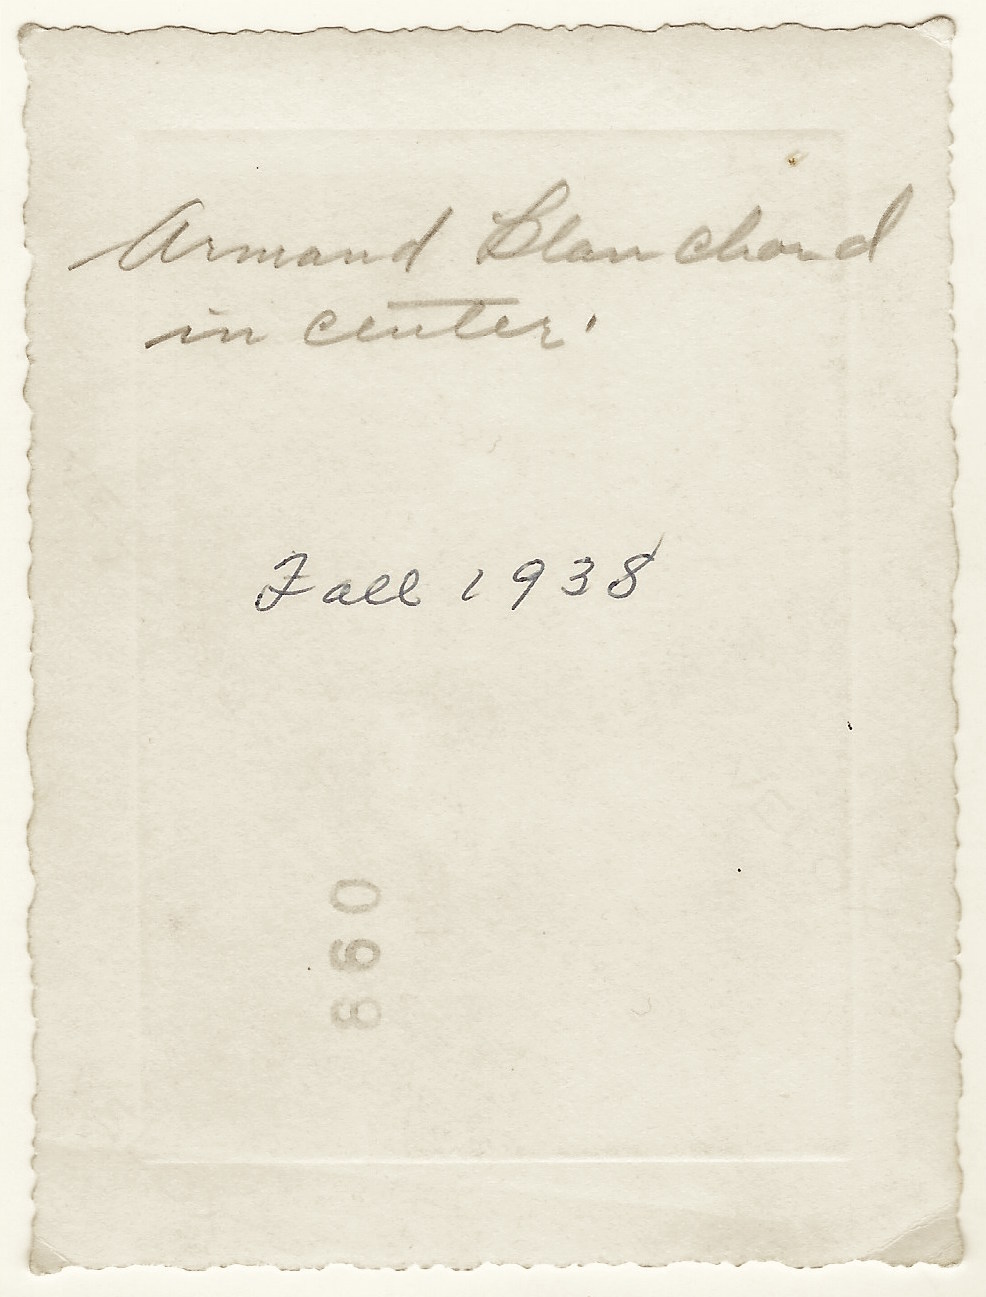 Armand Blanchard
in center.
Fall 1938
860